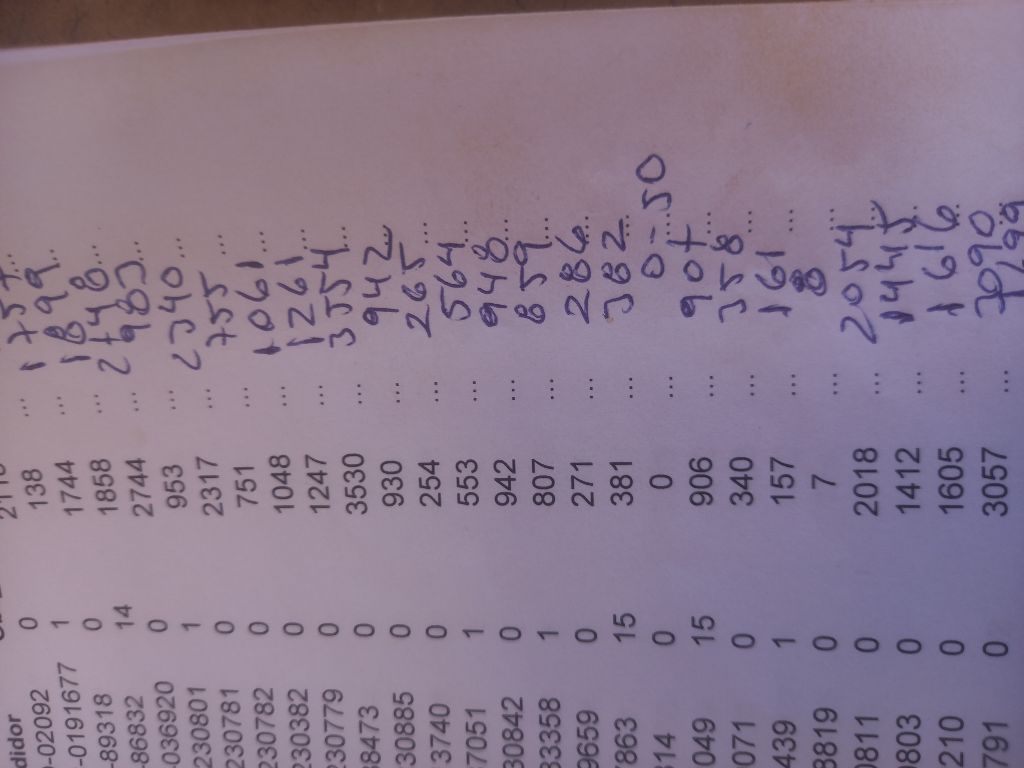 didor
-02092 0 2118
-01916771 1 138 ...
-89318 0 1744 ... 1757 ...
-86832 14 1858 ... 1899 ...
036920 0 2744 ... 2748 ...
230801 1 953 ... 983 ...
230781 0 2317 ... 2340 ...
230782 0 751 ... 755 ...
230382 0 1048 ... 1061 ...
230779 0 1247 ... 1261 ...
38473 0 3530 ... 3554 ...
30885 0 930 ... 942 ...
3740 0 254 ... 265 ...
7051 1 553 ... 564 ...
30842 0 942 ... 948 ...
33358 1 807 ... 859 ...
9659 0 271 ... 286 ...
7863 15 381 ... 382 ...
314 0 0 ... 0-50 ...
049 15 906 ... 907 ...
071 0 340 ... 358 ...
439 1 157 ... 161 ...
8819 0 7 ... 8 ...
0811 0 2018 ... 2054 ...
0803 0 1412 ... 1445 ...
210 0 1605 ... 1616 ...
791 0 3057 ... 3090